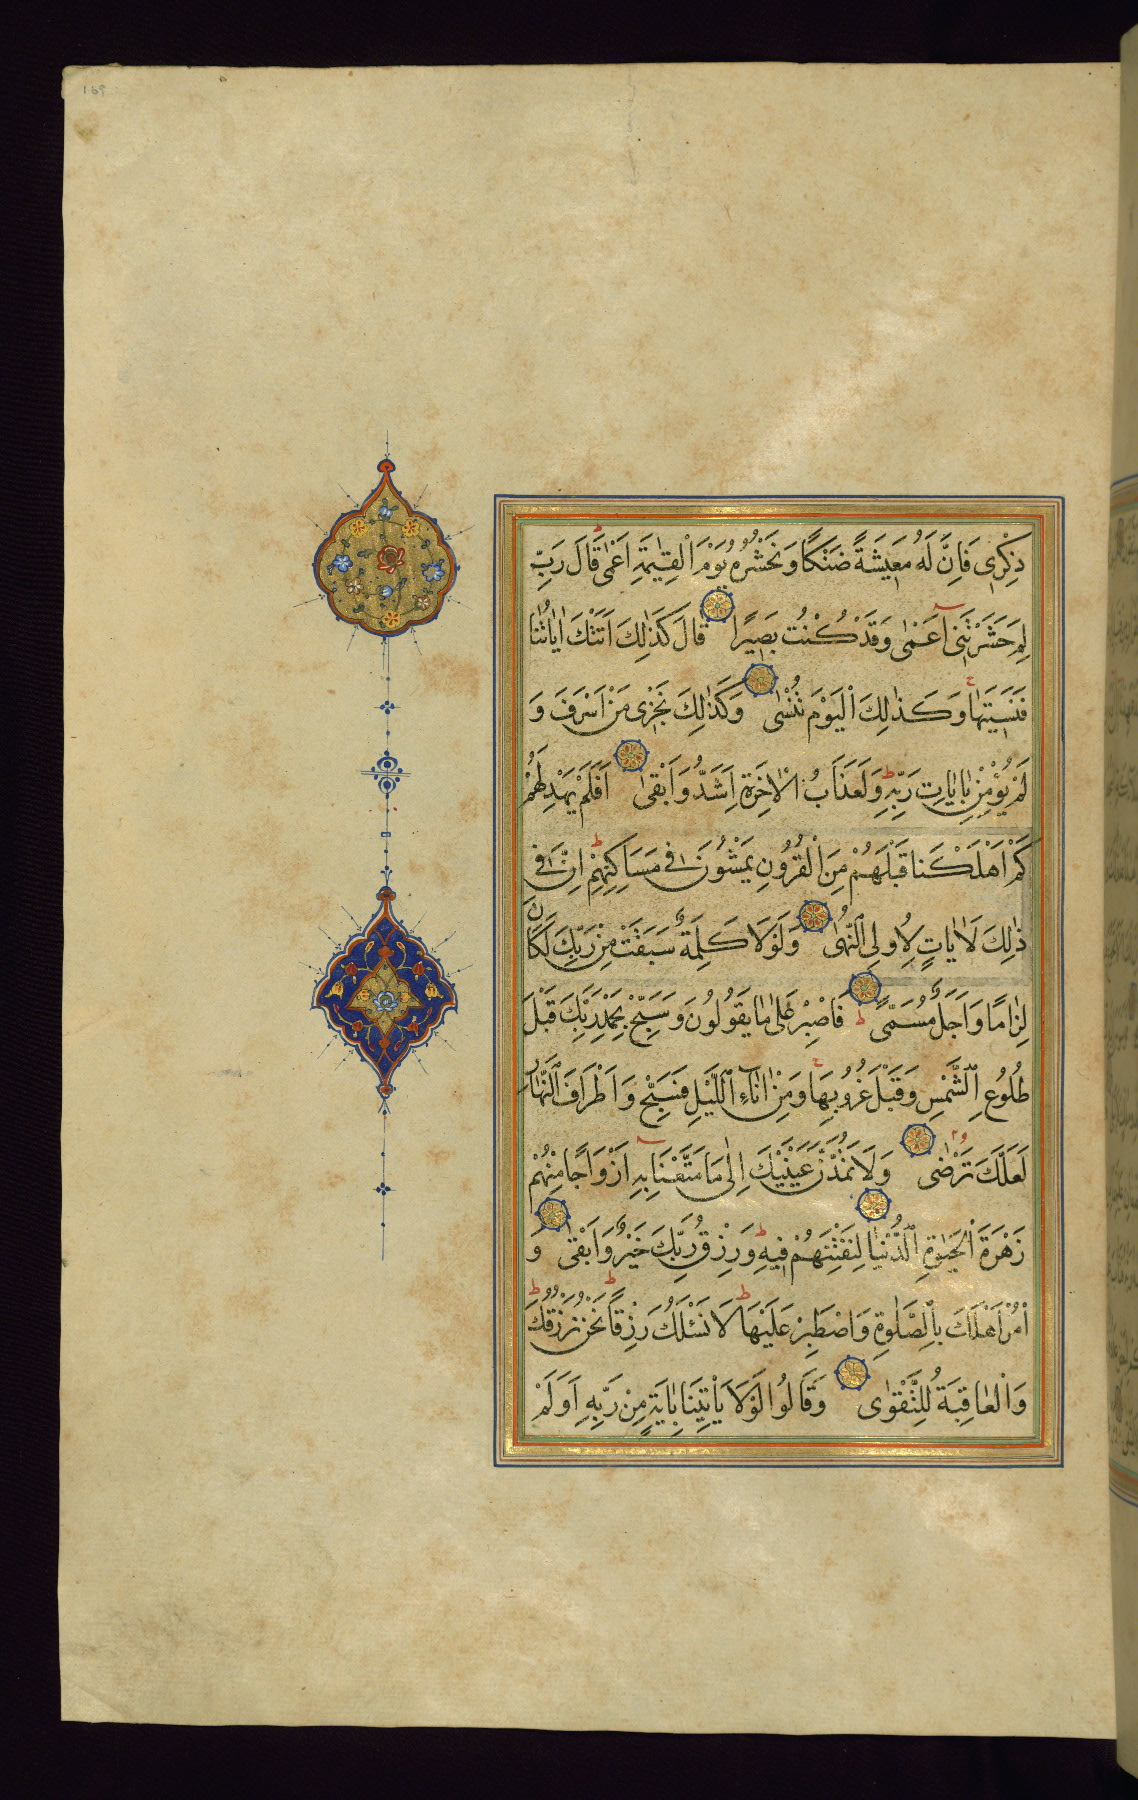 169
ذِكْرِى فَاِنَّ لَهُ مَعِيشَةً ضَنْكًا وَنَحْشُرُهُ يَوْمَ الْقِيٰمَةِ اَعْمٰى قَالَ رَبِّ
لِمَ حَشَرْتَنِى اَعْمٰى وَقَدْ كُنْتُ بَصِيرًا قَالَ كَذٰلِكَ اَتَتْكَ اٰيَاتُنَا
فَنَسِيتَهَا وَكَذٰلِكَ الْيَوْمَ تُنْسٰى وَكَذٰلِكَ نَجْزِى مَنْ اَسْرَفَ وَ
لَمْ يُؤْمِنْ بِاٰيَاتِ رَبِّهِ وَلَعَذَابُ الْاٰخِرَةِ اَشَدُّ وَاَبْقٰى اَفَلَمْ يَهْدِ لَهُمْ
كَمْ اَهْلَكْنَا قَبْلَهُمْ مِنَ الْقُرُونِ يَمْشُونَ فِى مَسَاكِنِهِمْ اِنَّ فِى
ذٰلِكَ لَاٰيَاتٍ لِاُولِى النُّهٰى وَلَوْلَا كَلِمَةٌ سَبَقَتْ مِنْ رَبِّكَ لَكَانَ
لِزَامًا وَاَجَلٌ مُسَمًّى فَاصْبِرْ عَلٰى مَا يَقُولُونَ وَسَبِّحْ بِحَمْدِ رَبِّكَ قَبْلَ
طُلُوعِ الشَّمْسِ وَقَبْلَ غُرُوبِهَا وَمِنْ اٰنَاءِ اللَّيْلِ فَسَبِّحْ وَاَطْرَافَ النَّهَارِ
لَعَلَّكَ تَرْضٰى وَلَا تَمُدَّنَّ عَيْنَيْكَ اِلٰى مَا مَتَّعْنَا بِهِ اَزْوَاجًا مِنْهُمْ
زَهْرَةَ الْحَيٰوةِ الدُّنْيَا لِنَفْتِنَهُمْ فِيهِ وَرِزْقُ رَبِّكَ خَيْرٌ وَاَبْقٰى وَ
اْمُرْ اَهْلَكَ بِالصَّلٰوةِ وَاصْطَبِرْ عَلَيْهَا لَا نَسْئَلُكَ رِزْقًا نَحْنُ نَرْزُقُكَ
وَالْعَاقِبَةُ لِلتَّقْوٰى وَقَالُوا لَوْلَا يَأْتِينَا بِاٰيَةٍ مِنْ رَبِّهِ اَوَلَمْ